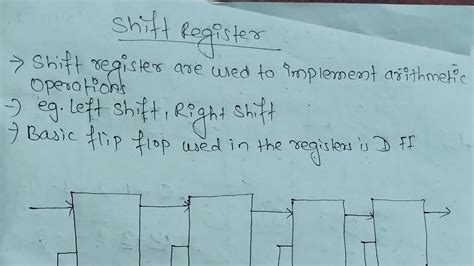 Shift Register
→ Shift register are used to implement arithmetic
operations
→ eg. Left Shift, Right Shift
→ Basic flip flop used in the registers is D FF